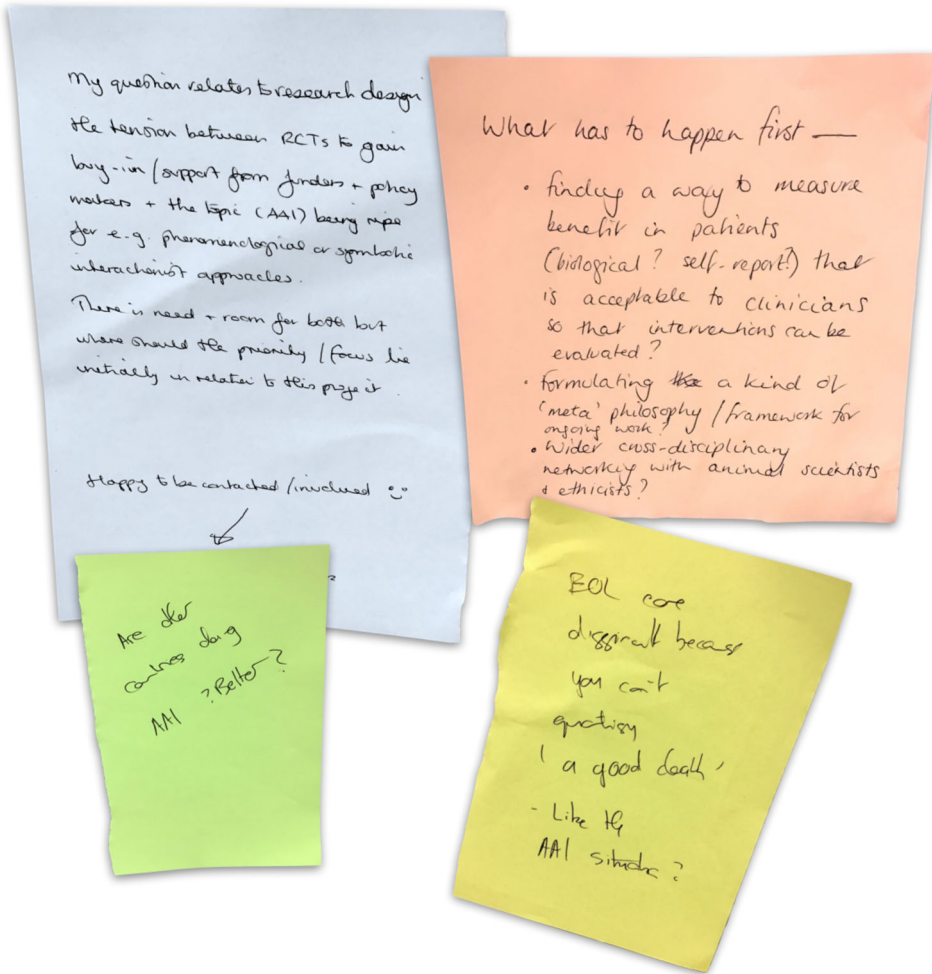 My question relates to research design
the tension between RCTs to gain
buy-in / support from funders + policy
makers + the topic (AAI) being ripe
for e.g. phenomenological or symbolic
interactionist approaches.
There is need + room for both but
where should the priority / focus lie
initially in relation to this project.
Happy to be contacted / involved
What has to happen first —
• finding a way to measure
benefit in patients
(biological? self-report?) that
is acceptable to clinicians
so that interventions can be
evaluated?
• formulating a kind of
'meta' philosophy / framework for
ongoing work?
• Wider cross-disciplinary
networking with animal scientists
& ethicists?
Are other
countries doing
AAI ? Better?
EOL care
difficult because
you can't
quantify
'a good death'
- Like the
AAI situation?